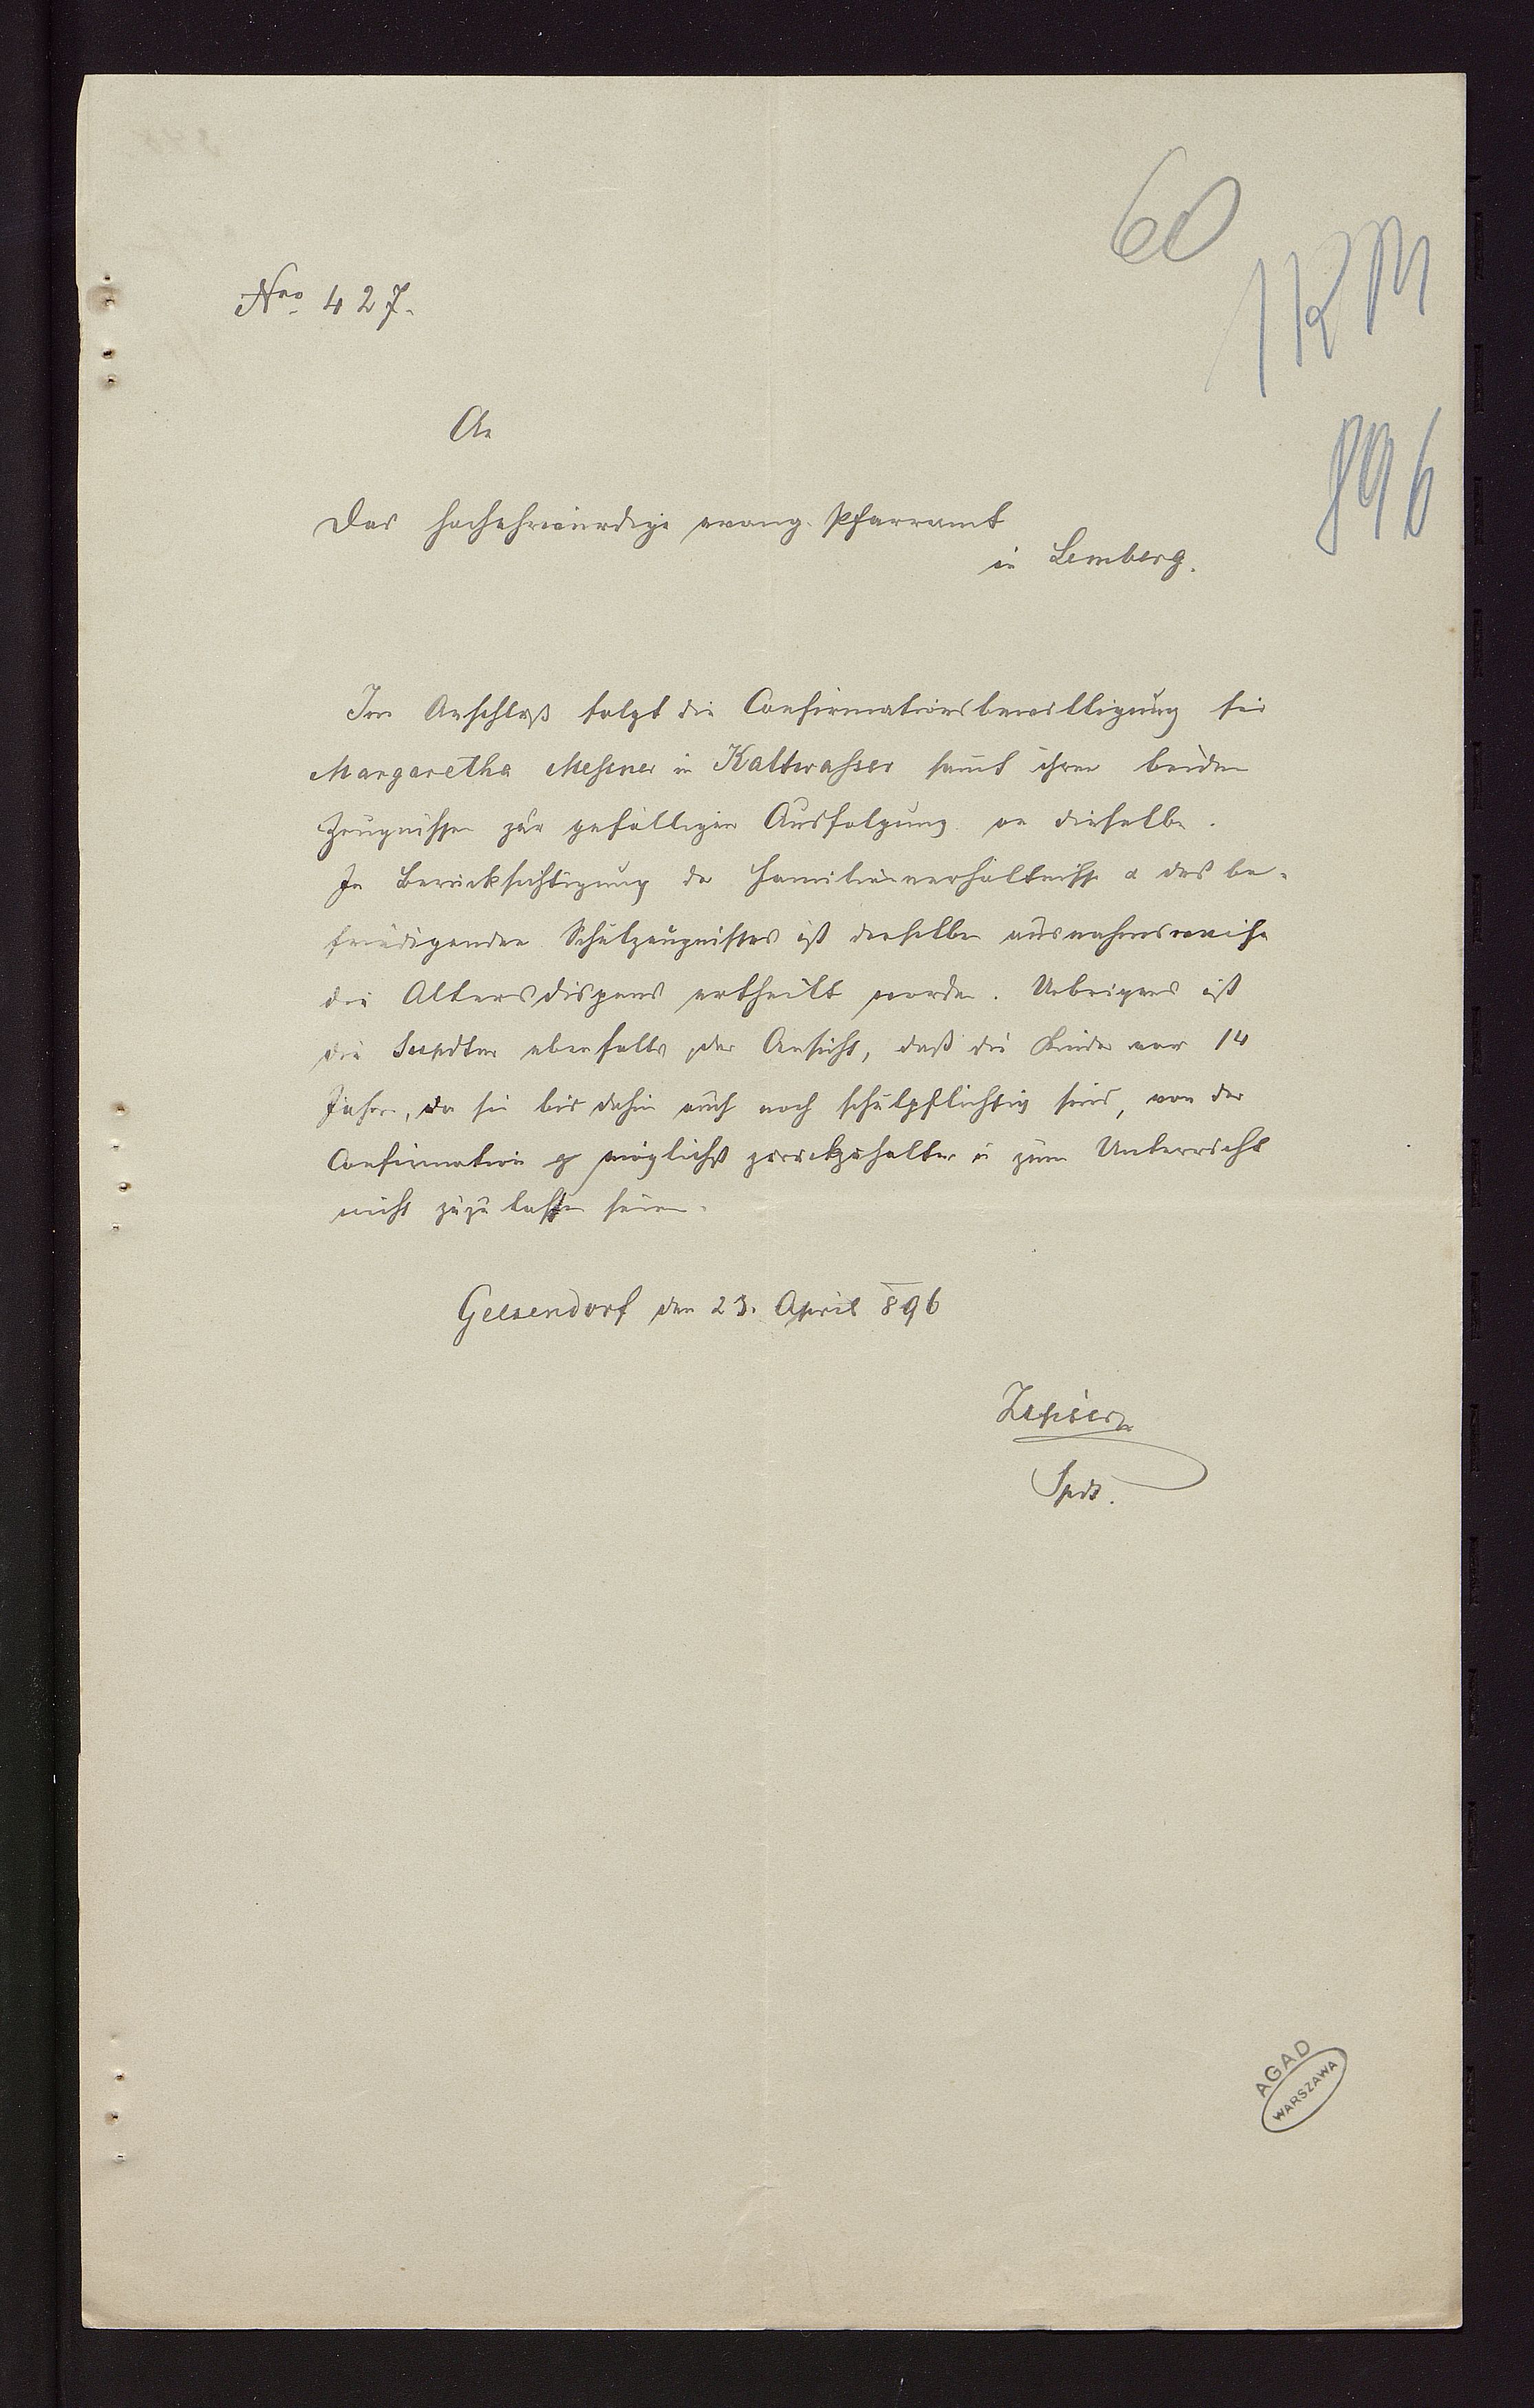 60
1KM
896
Nro 427.
An
Das hochehrwürdige evang. Pfarramt
in Lemberg.
Im Anschluß folgt die Confirmationsbewilligung für
Margaretha Meßner in Kaltwasser samt ihren beiden
Zeugnissen zur gefälligen Ausfolgung an dieselbe.
In Berücksichtigung der Familienverhältnisse & des be-
friedigenden Schulzeugnisses ist derselben ausnahmsweise
die Altersdispens ertheilt worden. Uebrigens ist
die Supdtur ebenfalls der Ansicht, daß die Kinder vor 14
Jahren, da sie bis dahin auch noch schulpflichtig sind, von der
Confirmation möglichst zurückzuhalten u zum Unterricht
nicht zuzulassen seien.
Gelsendorf den 23. April 896
Zipser
Spdt.
AGAD
WARSZAWA